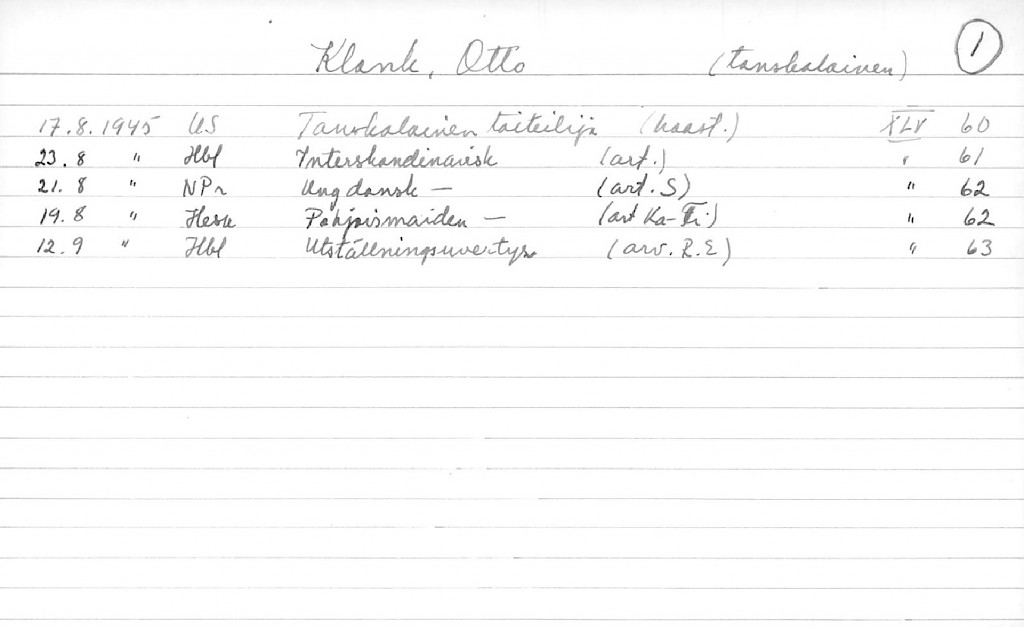 Klank, Otto (tanskalainen) 1
17.8.1945 US Tanskalainen taiteilija (haast.) XLV 60
23.8 " Hbl Interskandinavisk (art.) " 61
21.8 " NPr Ung dansk — (art. S) " 62
19.8 " Hesa Pohjoismaiden — (art Ka-Ti) " 62
12.9 " Hbl Utställningsuvertyr (arv. R.E) " 63